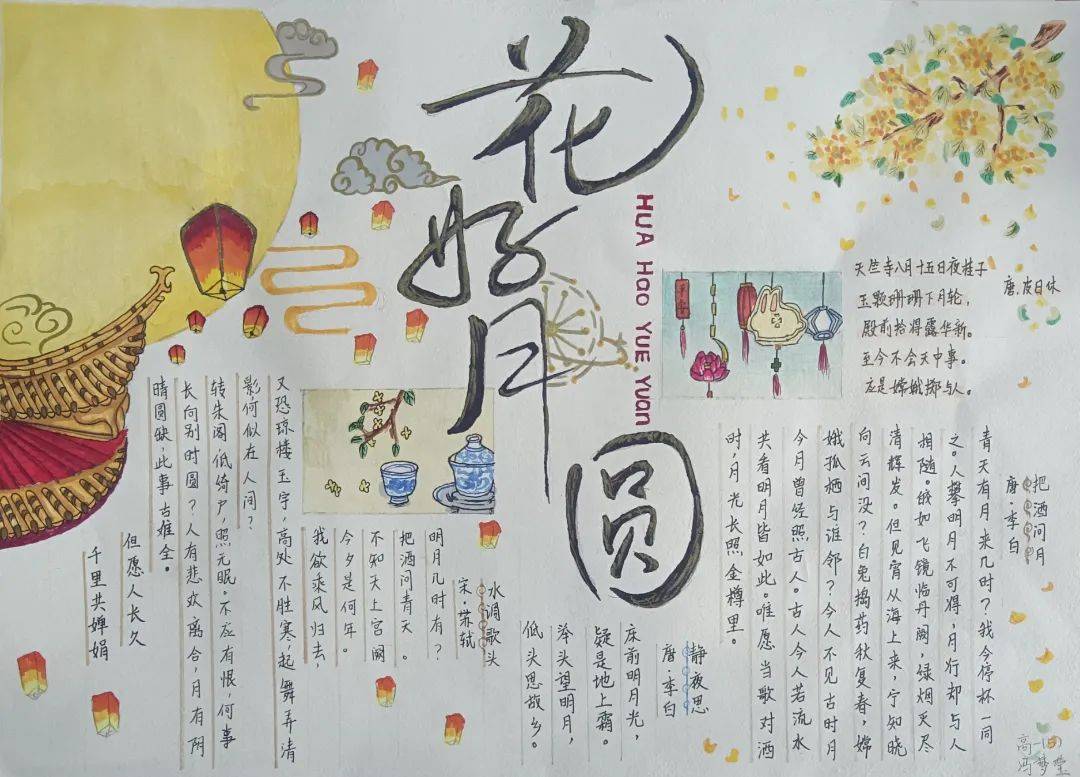 花好月圆
HUA Hao YUE Yuan
天竺寺八月十五日夜桂子
唐·皮日休
玉颗珊珊下月轮，
殿前拾得露华新。
至今不会天中事。
应是嫦娥掷与人。
把酒问月
唐·李白
青天有月来几时？我今停杯一问
之。人攀明月不可得，月行却与人
相随。皎如飞镜临丹阙，绿烟灭尽
清辉发。但见宵从海上来，宁知晓
向云间没？白兔捣药秋复春，嫦
娥孤栖与谁邻？今人不见古时月
今月曾经照古人。古人今人若流水
共看明月皆如此。唯愿当歌对酒
时，月光长照金樽里。
静夜思
唐·李白
床前明月光，
疑是地上霜。
举头望明月，
低头思故乡。
水调歌头
宋·苏轼
明月几时有？
把酒问青天。
不知天上宫阙
今夕是何年。
我欲乘风归去，
又恐琼楼玉宇，高处不胜寒，起舞弄清
影，何似在人间？
转朱阁，低绮户，照无眠。不应有恨，何事
长向别时圆？人有悲欢离合，月有阴
晴圆缺，此事古难全。
但愿人长久
千里共婵娟
高一